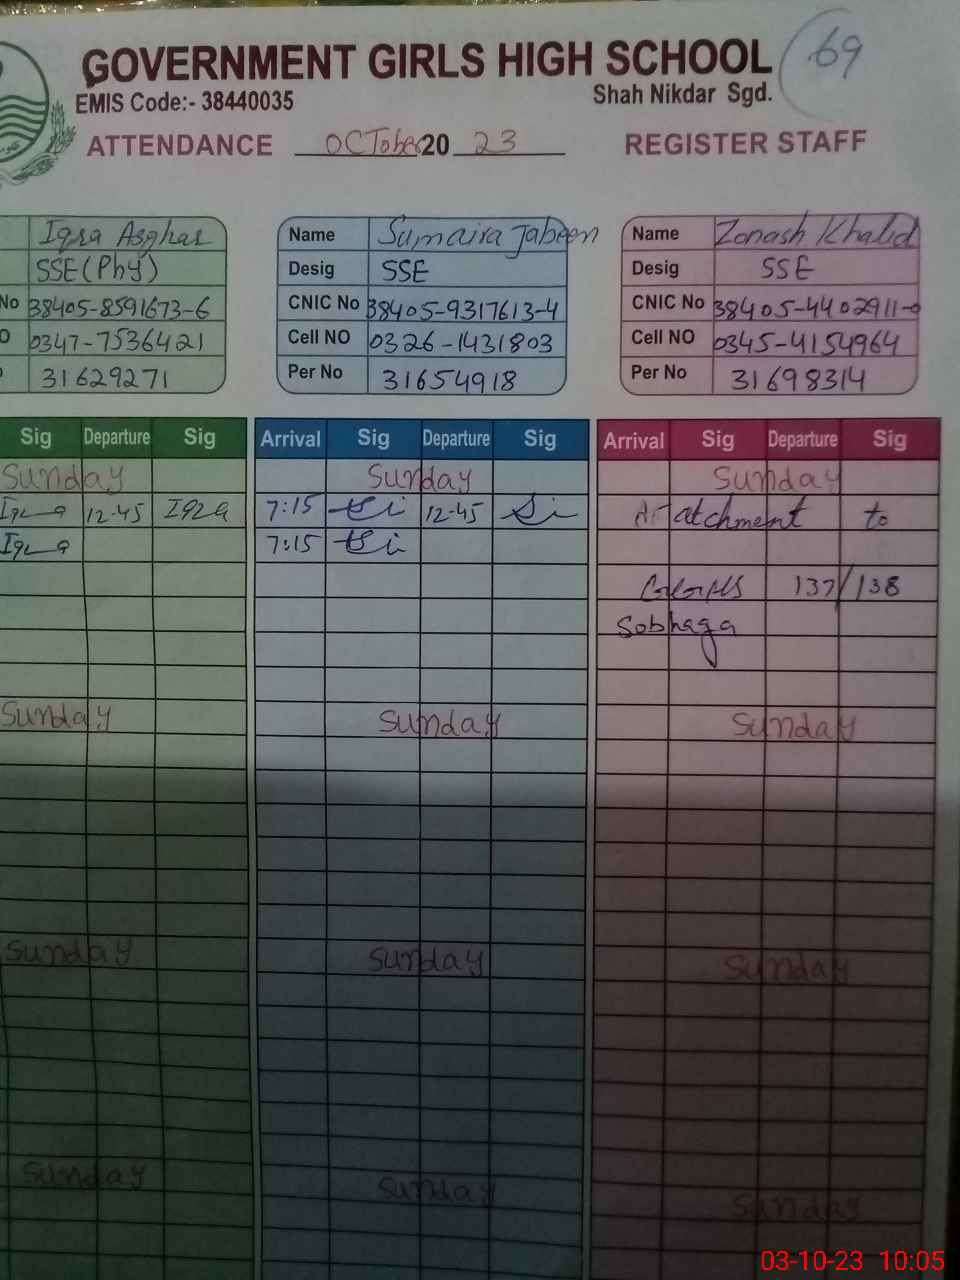 GOVERNMENT GIRLS HIGH SCHOOL 69
EMIS Code:- 38440035 Shah Nikdar Sgd.
ATTENDANCE October 20 23 REGISTER STAFF
Iqra Asghar Name Sumaira Jabeen Name Zonash Khalid
SSE (Phy) Desig SSE Desig SSE
No 38405-8591673-6 CNIC No 38405-9317613-4 CNIC No 38405-4402911-0
O 0347-7536421 Cell NO 0326-1431803 Cell NO 0345-4154964
31629271 Per No 31654918 Per No 31698314
Sig Departure Sig Arrival Sig Departure Sig Arrival Sig Departure Sig
Sunday Sunday Sunday
Iqra 12-45 Iqra 7:15 12-45 Attachment to
Iqra 7:15
137/138
Sobhaga
Sunday Sunday Sunday
Sunday Sunday Sunday
Sunday Sunday Sunday
03-10-23 10:05